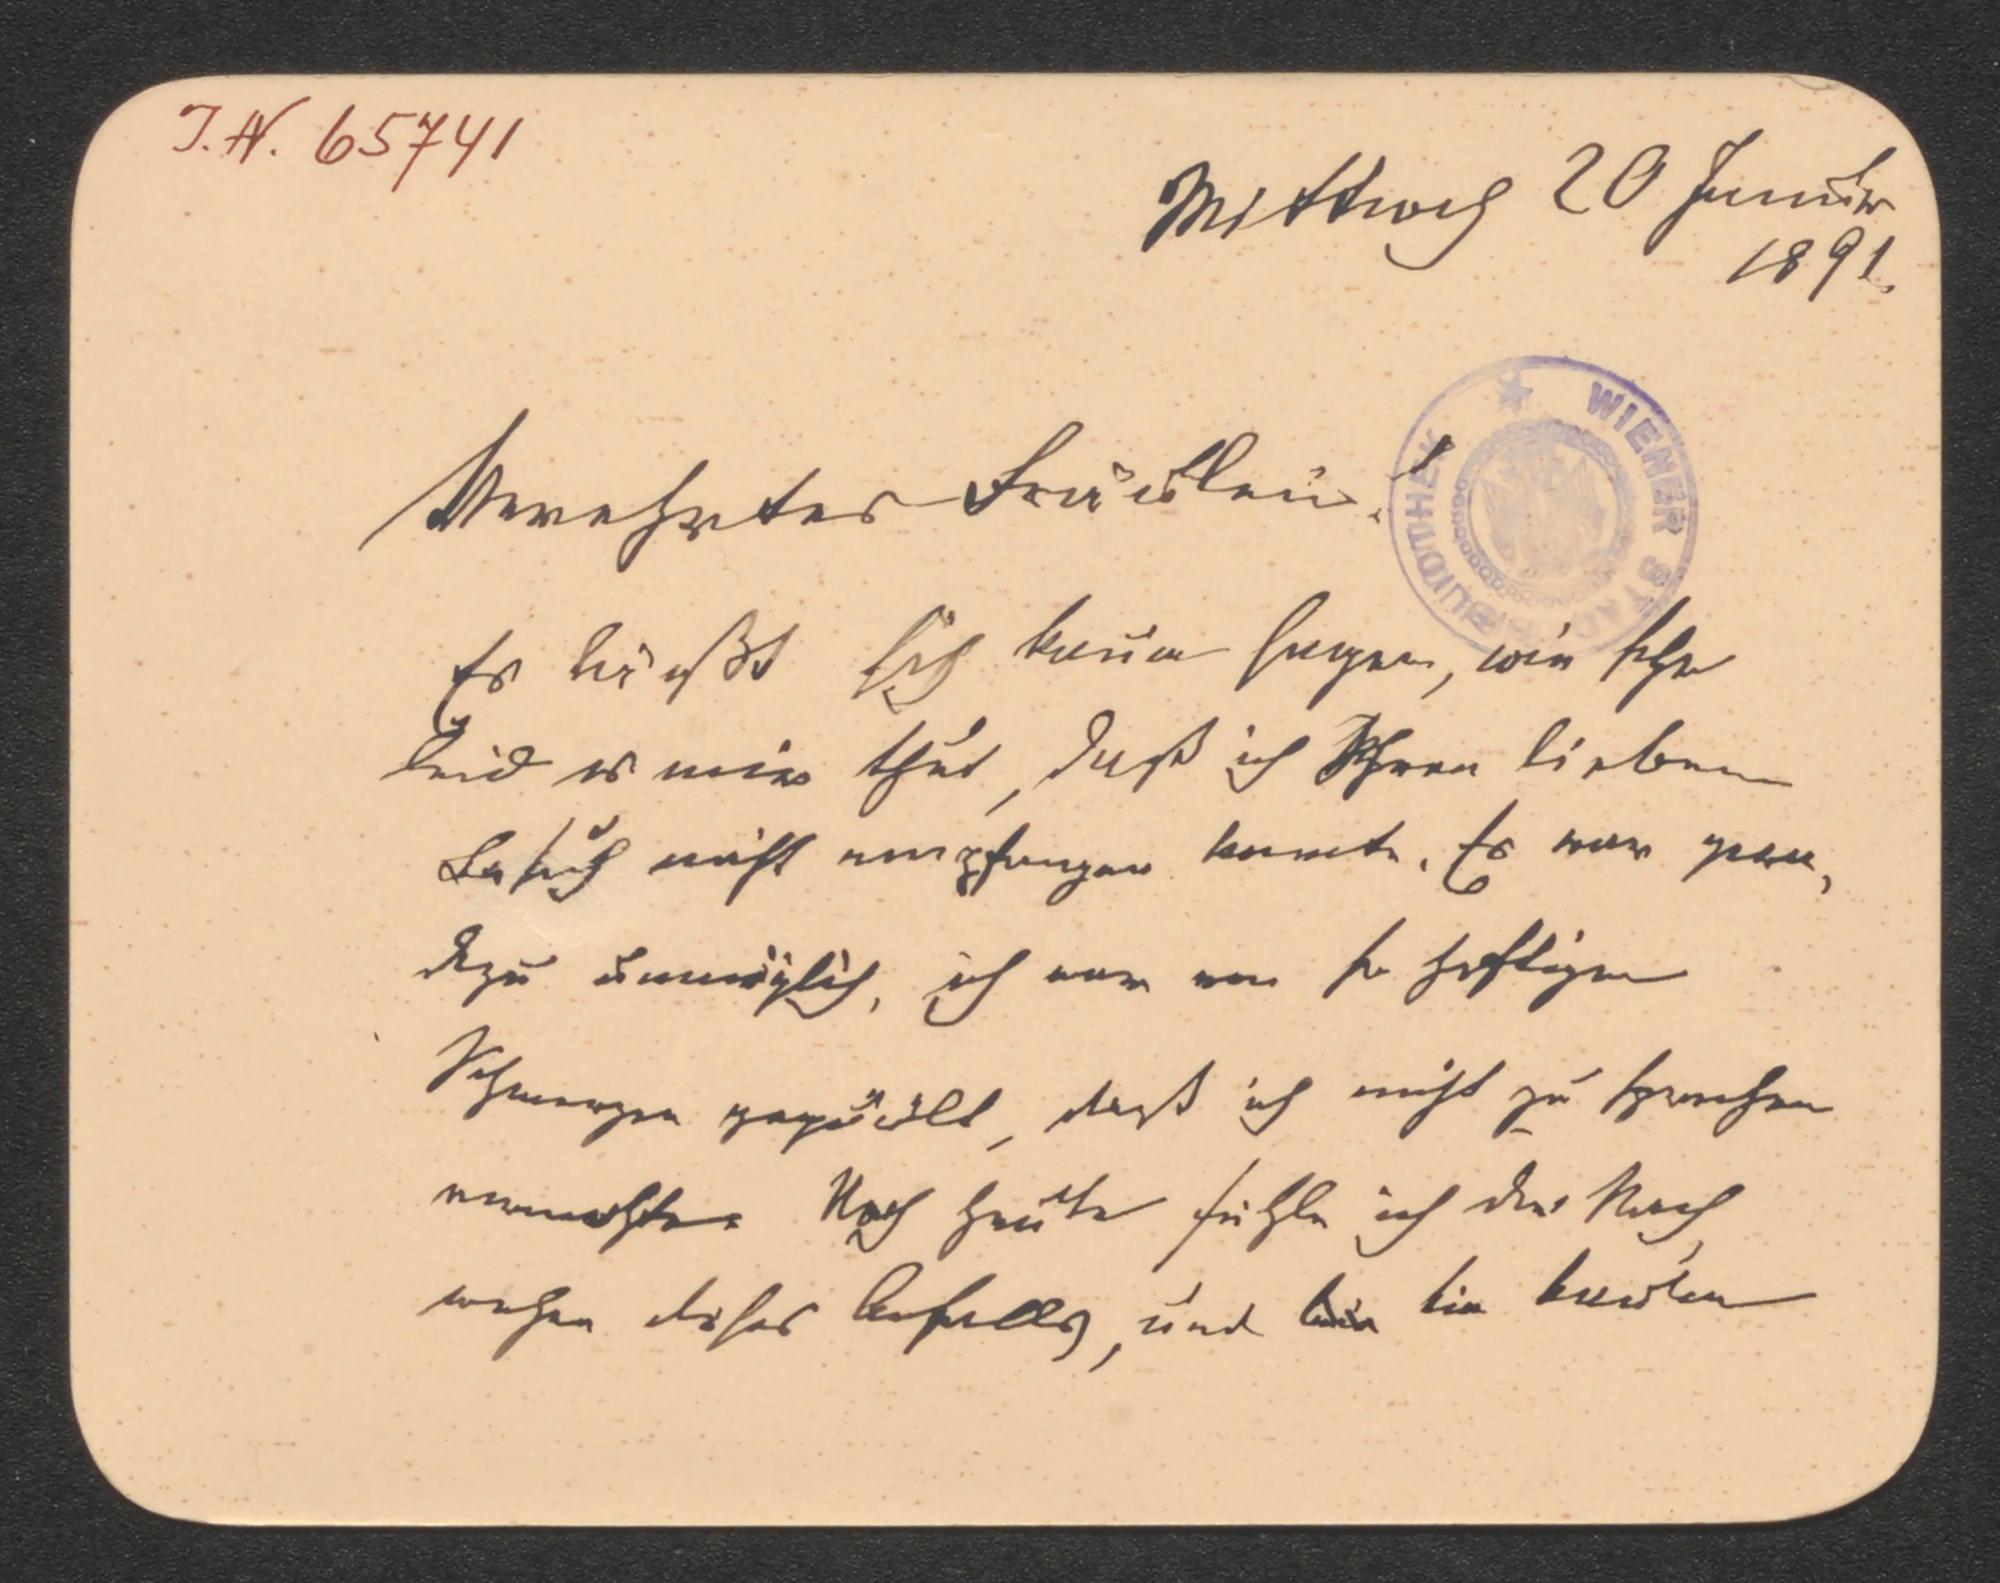 I.N. 65741
Mittwoch 20 Januar
1891.
WIENER STADTBIBLIOTHEK
Verehrtes Fräulein!
Es läßt sich kaum sagen, wie sehr
leid es mir thut, daß ich Ihren lieben
Besuch nicht empfangen konnte. Es war gera,
dezu unmöglich, ich war von so heftigen
Schmerzen gequält, daß ich nicht zu sprechen
vermochte. Noch heute fühle ich die Nach
wehen dieses Anfalls, und bin